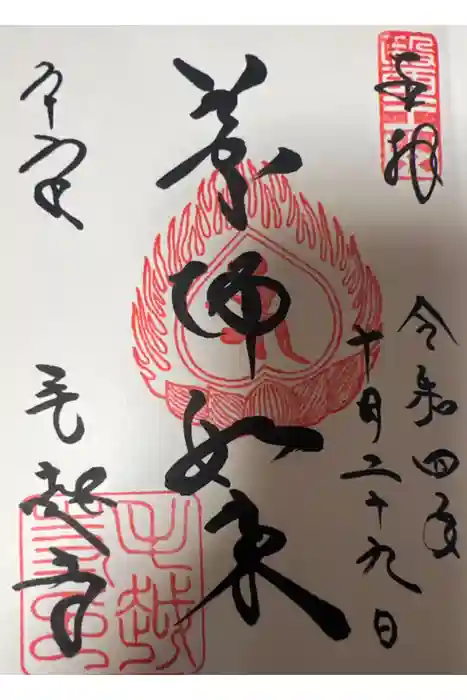 奉拝
令和四年
十月二十九日
薬師如来
平泉
毛越寺